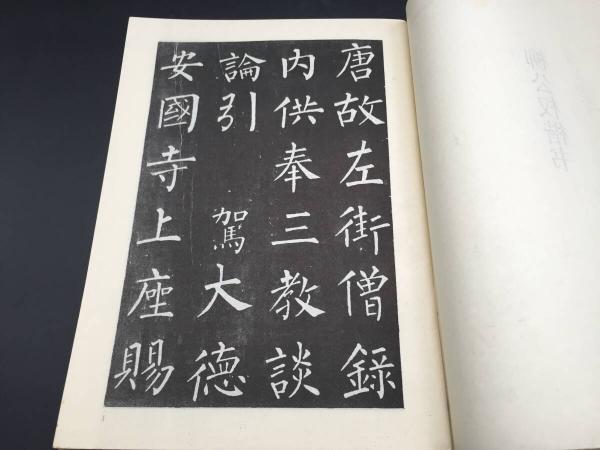 唐故左街僧錄
内供奉三教談
論引 駕大德
安國寺上座賜